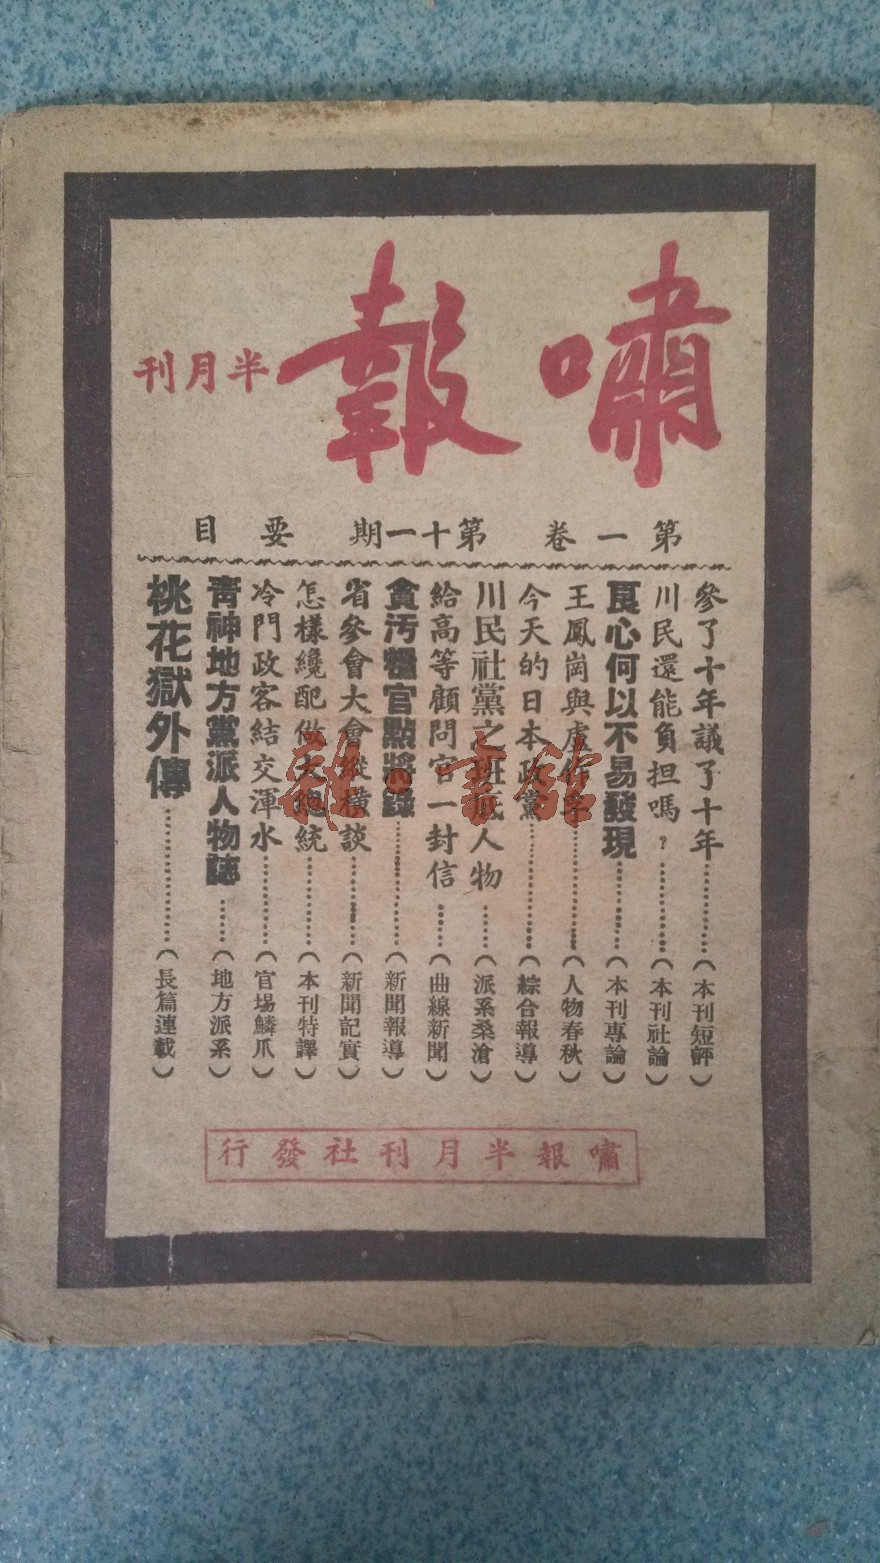 嘯報
半月刊
第一卷 第十一期 要目
參了十年議了十年……（本刊短評）
川民還能負担嗎？……（本刊社論）
良心何以不易發現……（本刊專論）
王鳳崗與盧作孚……（人物春秋）
今天的日本政黨……（綜合報導）
川民社黨之班底人物……（派系桑滄）
給高等顧問官一封信……（曲線新聞）
貪污糧官點將錄……（新聞報導）
省參會大會縱橫談……（新聞記實）
怎樣纔配做大總統……（本刊特譯）
冷門政客結交渾水……（官場鱗爪）
青神地方黨派人物誌……（地方派系）
桃花獄外傳……（長篇連載）
嘯報半月刊社發行
書館